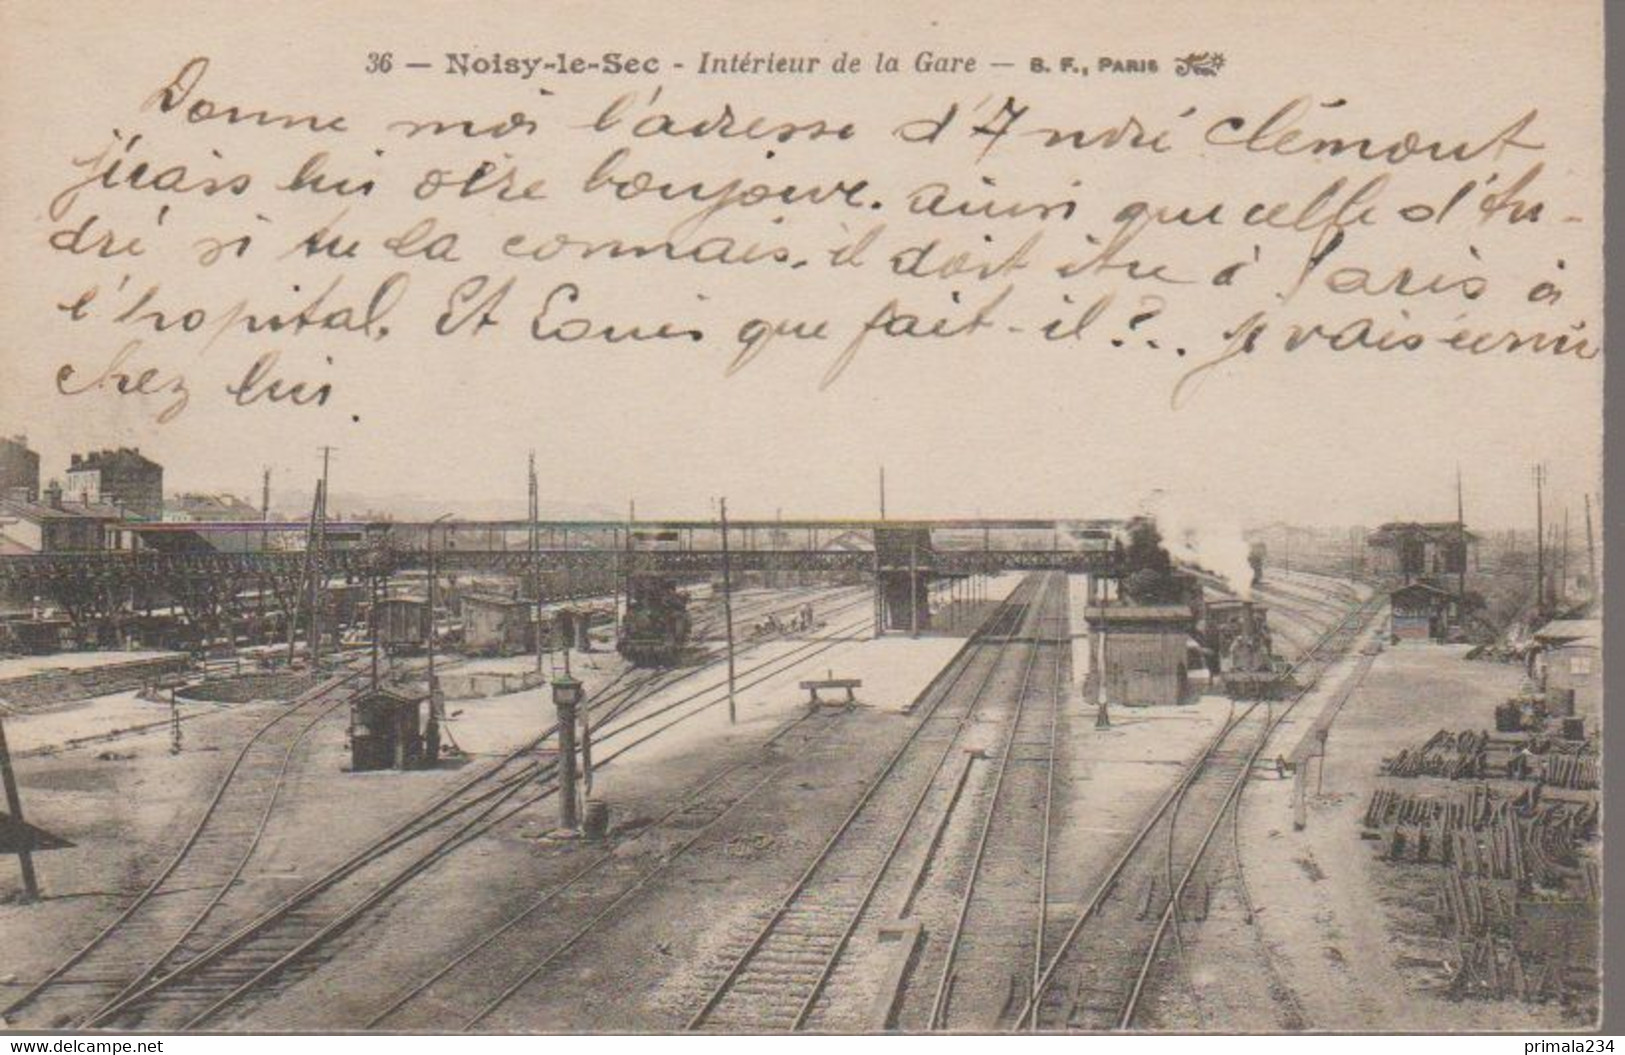 36 — Noisy-le-Sec - Intérieur de la Gare — S. F., PARIS
Donne moi l'adresse d'André clémont
j'irais lui dire bonjour. ainsi que celle d'An-
dré si tu la connais. il doit être à Paris à
l'hopital. Et Louis que fait-il?... je vais
chez lui.
www.delcampe.net
primala234